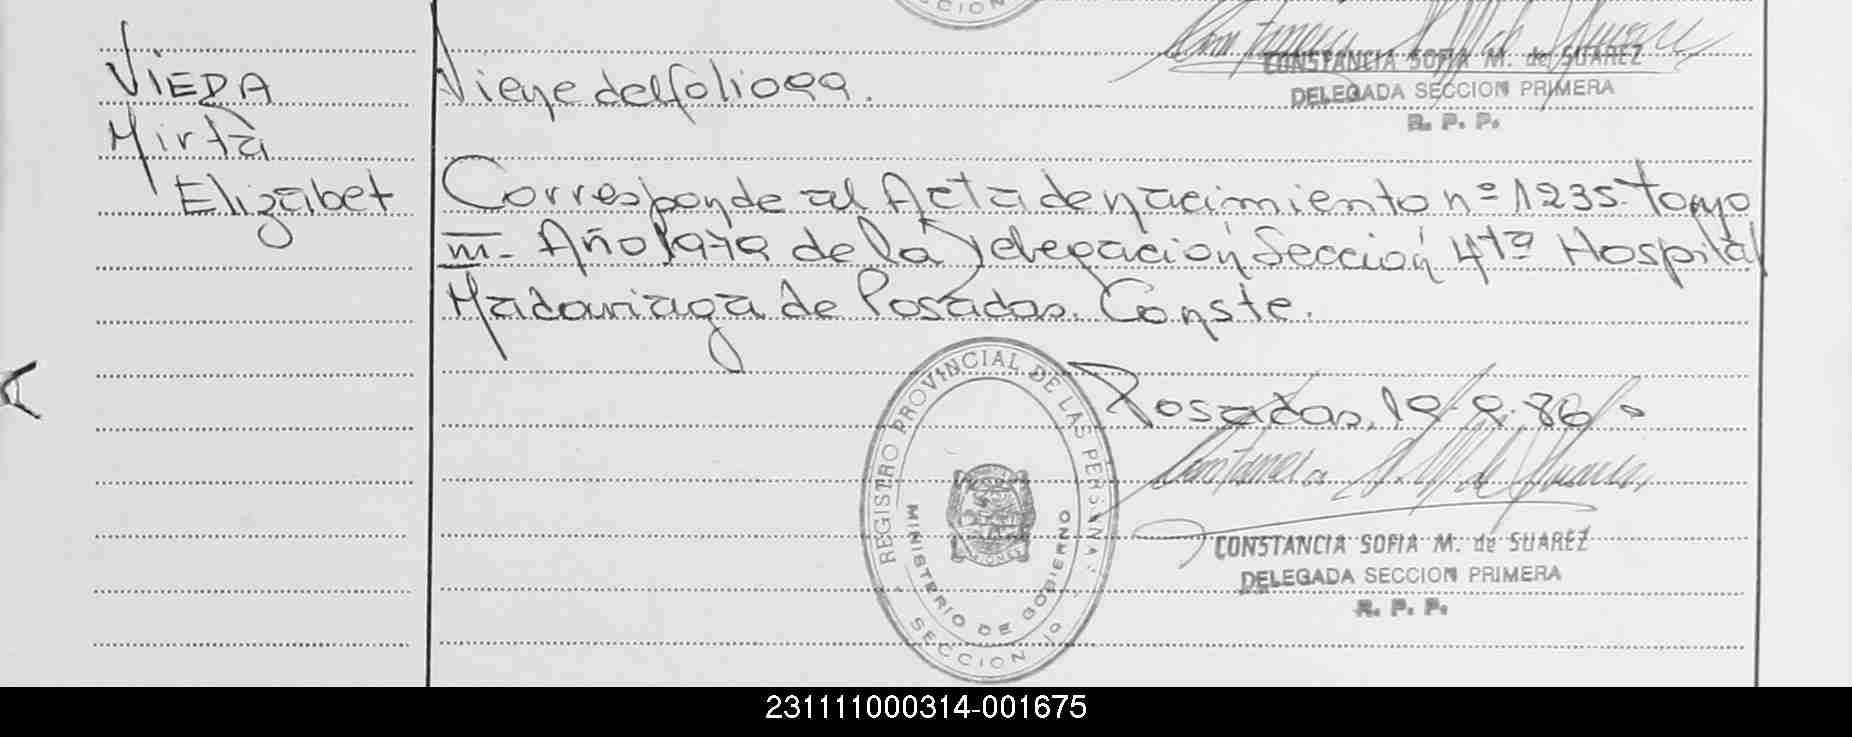 CCION
CONSTANCIA SOFIA M. de SUAREZ
DELEGADA SECCION PRIMERA
R. P. P.
VIEDA
Mirta
Elizabet
Viene del folio 99.
Corresponde al Acta de nacimiento nº 1235. Tomo
III- Año 1979 de la Delegación Sección 4ta Hospital
Madariaga de Posadas. Conste.
Posadas, 19-9-86
REGISTRO PROVINCIAL DE LAS PERSONAS
MINISTERIO DE GOBIERNO
SECCION 1º
CONSTANCIA SOFIA M. de SUAREZ
DELEGADA SECCION PRIMERA
R. P. P.
231111000314-001675